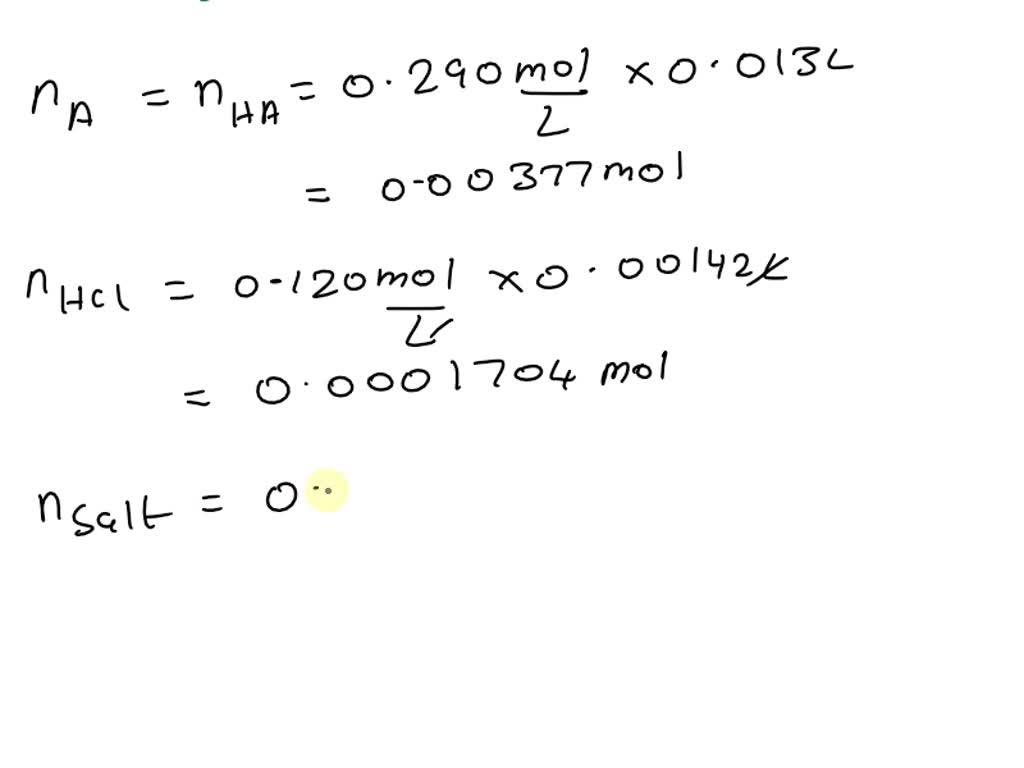 nA = nHA = 0.290 mol/L × 0.013L
= 0.00377 mol
nHCl = 0.120 mol/L × 0.00142L
= 0.0001704 mol
nSalt = 0.